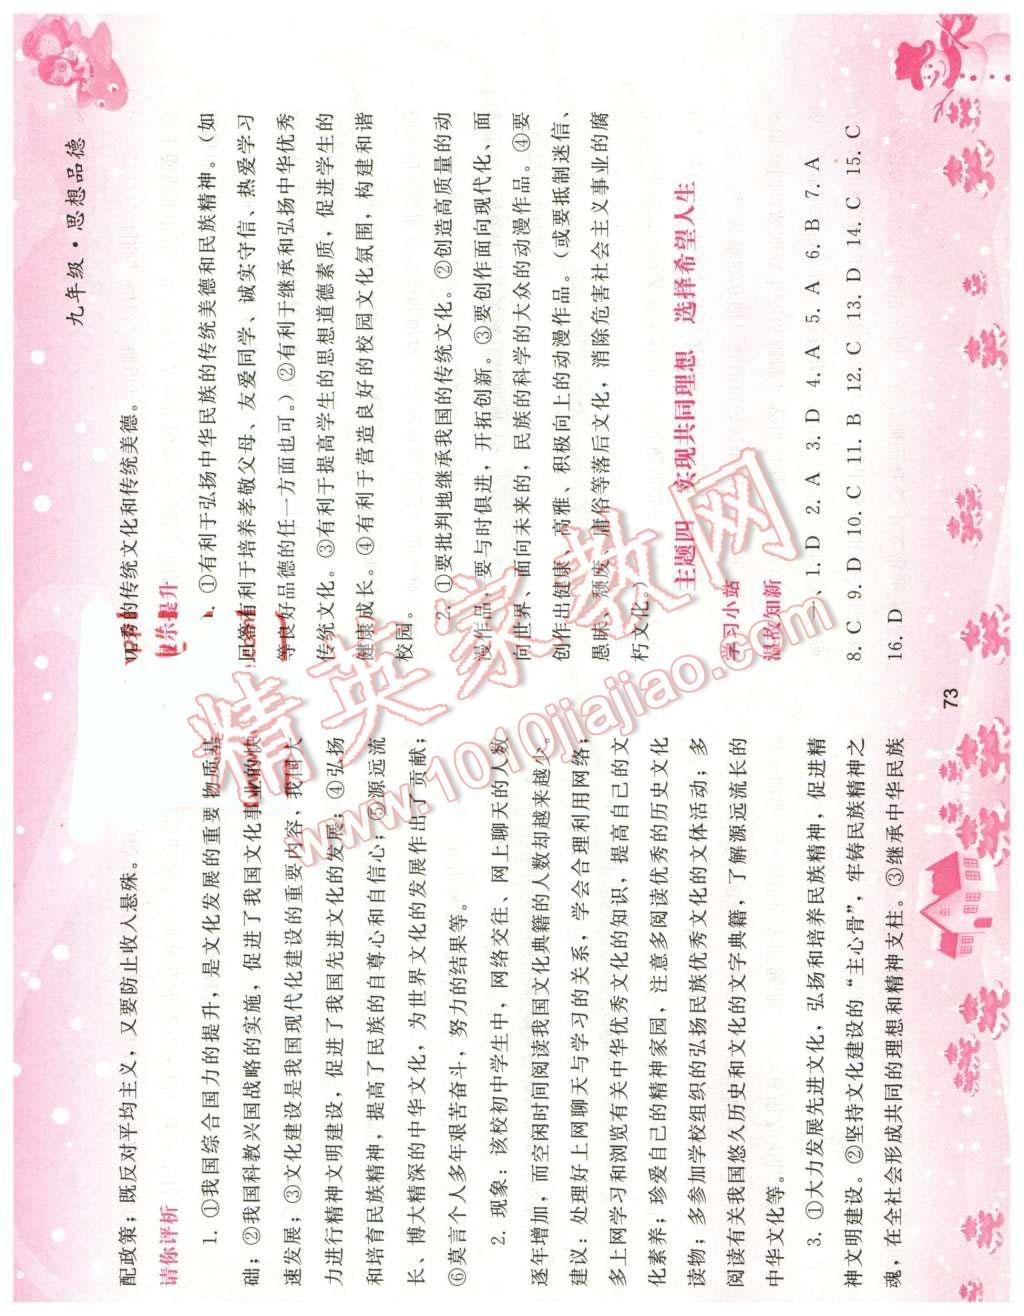 九年级·思想品德
配政策；既反对平均主义，又要防止收入悬殊。
请你评析
1. ①我国综合国力的提升，是文化发展的重要物质基
础；②我国科教兴国战略的实施，促进了我国文化事业的快
速发展；③文化建设是我国现代化建设的重要内容，我国大
力进行精神文明建设，促进了我国先进文化的发展；④弘扬
和培育民族精神，提高了民族的自尊心和自信心；⑤源远流
长、博大精深的中华文化，为世界文化的发展作出了贡献；
⑥莫言个人多年艰苦奋斗，努力的结果等。
2. 现象：该校初中学生中，网络交往、网上聊天的人数
逐年增加，而空闲时间阅读我国文化典籍的人数却越来越少。
建议：处理好上网聊天与学习的关系，学会合理利用网络；
多上网学习和浏览有关中华优秀文化的知识，提高自己的文
化素养；珍爱自己的精神家园，注意多阅读优秀的历史文化
读物；多参加学校组织的弘扬民族优秀文化的文体活动；多
阅读有关我国悠久历史和文化的文字典籍，了解源远流长的
中华文化等。
3. ①大力发展先进文化，弘扬和培养民族精神，促进精
神文明建设。②坚持文化建设的“主心骨”，牢铸民族精神之
魂，在全社会形成共同的理想和精神支柱。③继承中华民族
秀的传统文化和传统美德。
提升
①有利于弘扬中华民族的传统美德和民族精神。（如
回答有利于培养孝敬父母、友爱同学、诚实守信、热爱学习
等良好品德的任一方面也可。）②有利于继承和弘扬中华优秀
传统文化。③有利于提高学生的思想道德素质，促进学生的
健康成长。④有利于营造良好的校园文化氛围，构建和谐
校园。
2. ①要批判地继承我国的传统文化。②创造高质量的动
漫作品，要与时俱进，开拓创新。③要创作面向现代化、面
向世界、面向未来的，民族的科学的大众的动漫作品。④要
创作出健康、高雅、积极向上的动漫作品。（或要抵制迷信、
愚昧、颓废、庸俗等落后文化，消除危害社会主义事业的腐
朽文化。）
主题四 实现共同理想 选择希望人生
学习小站
温故知新
一、1. D 2. A 3. D 4. A 5. A 6. B 7. A
8. C 9. D 10. C 11. B 12. C 13. D 14. C 15. C
16. D
73
精英家教网
www.1010jiajiao.com